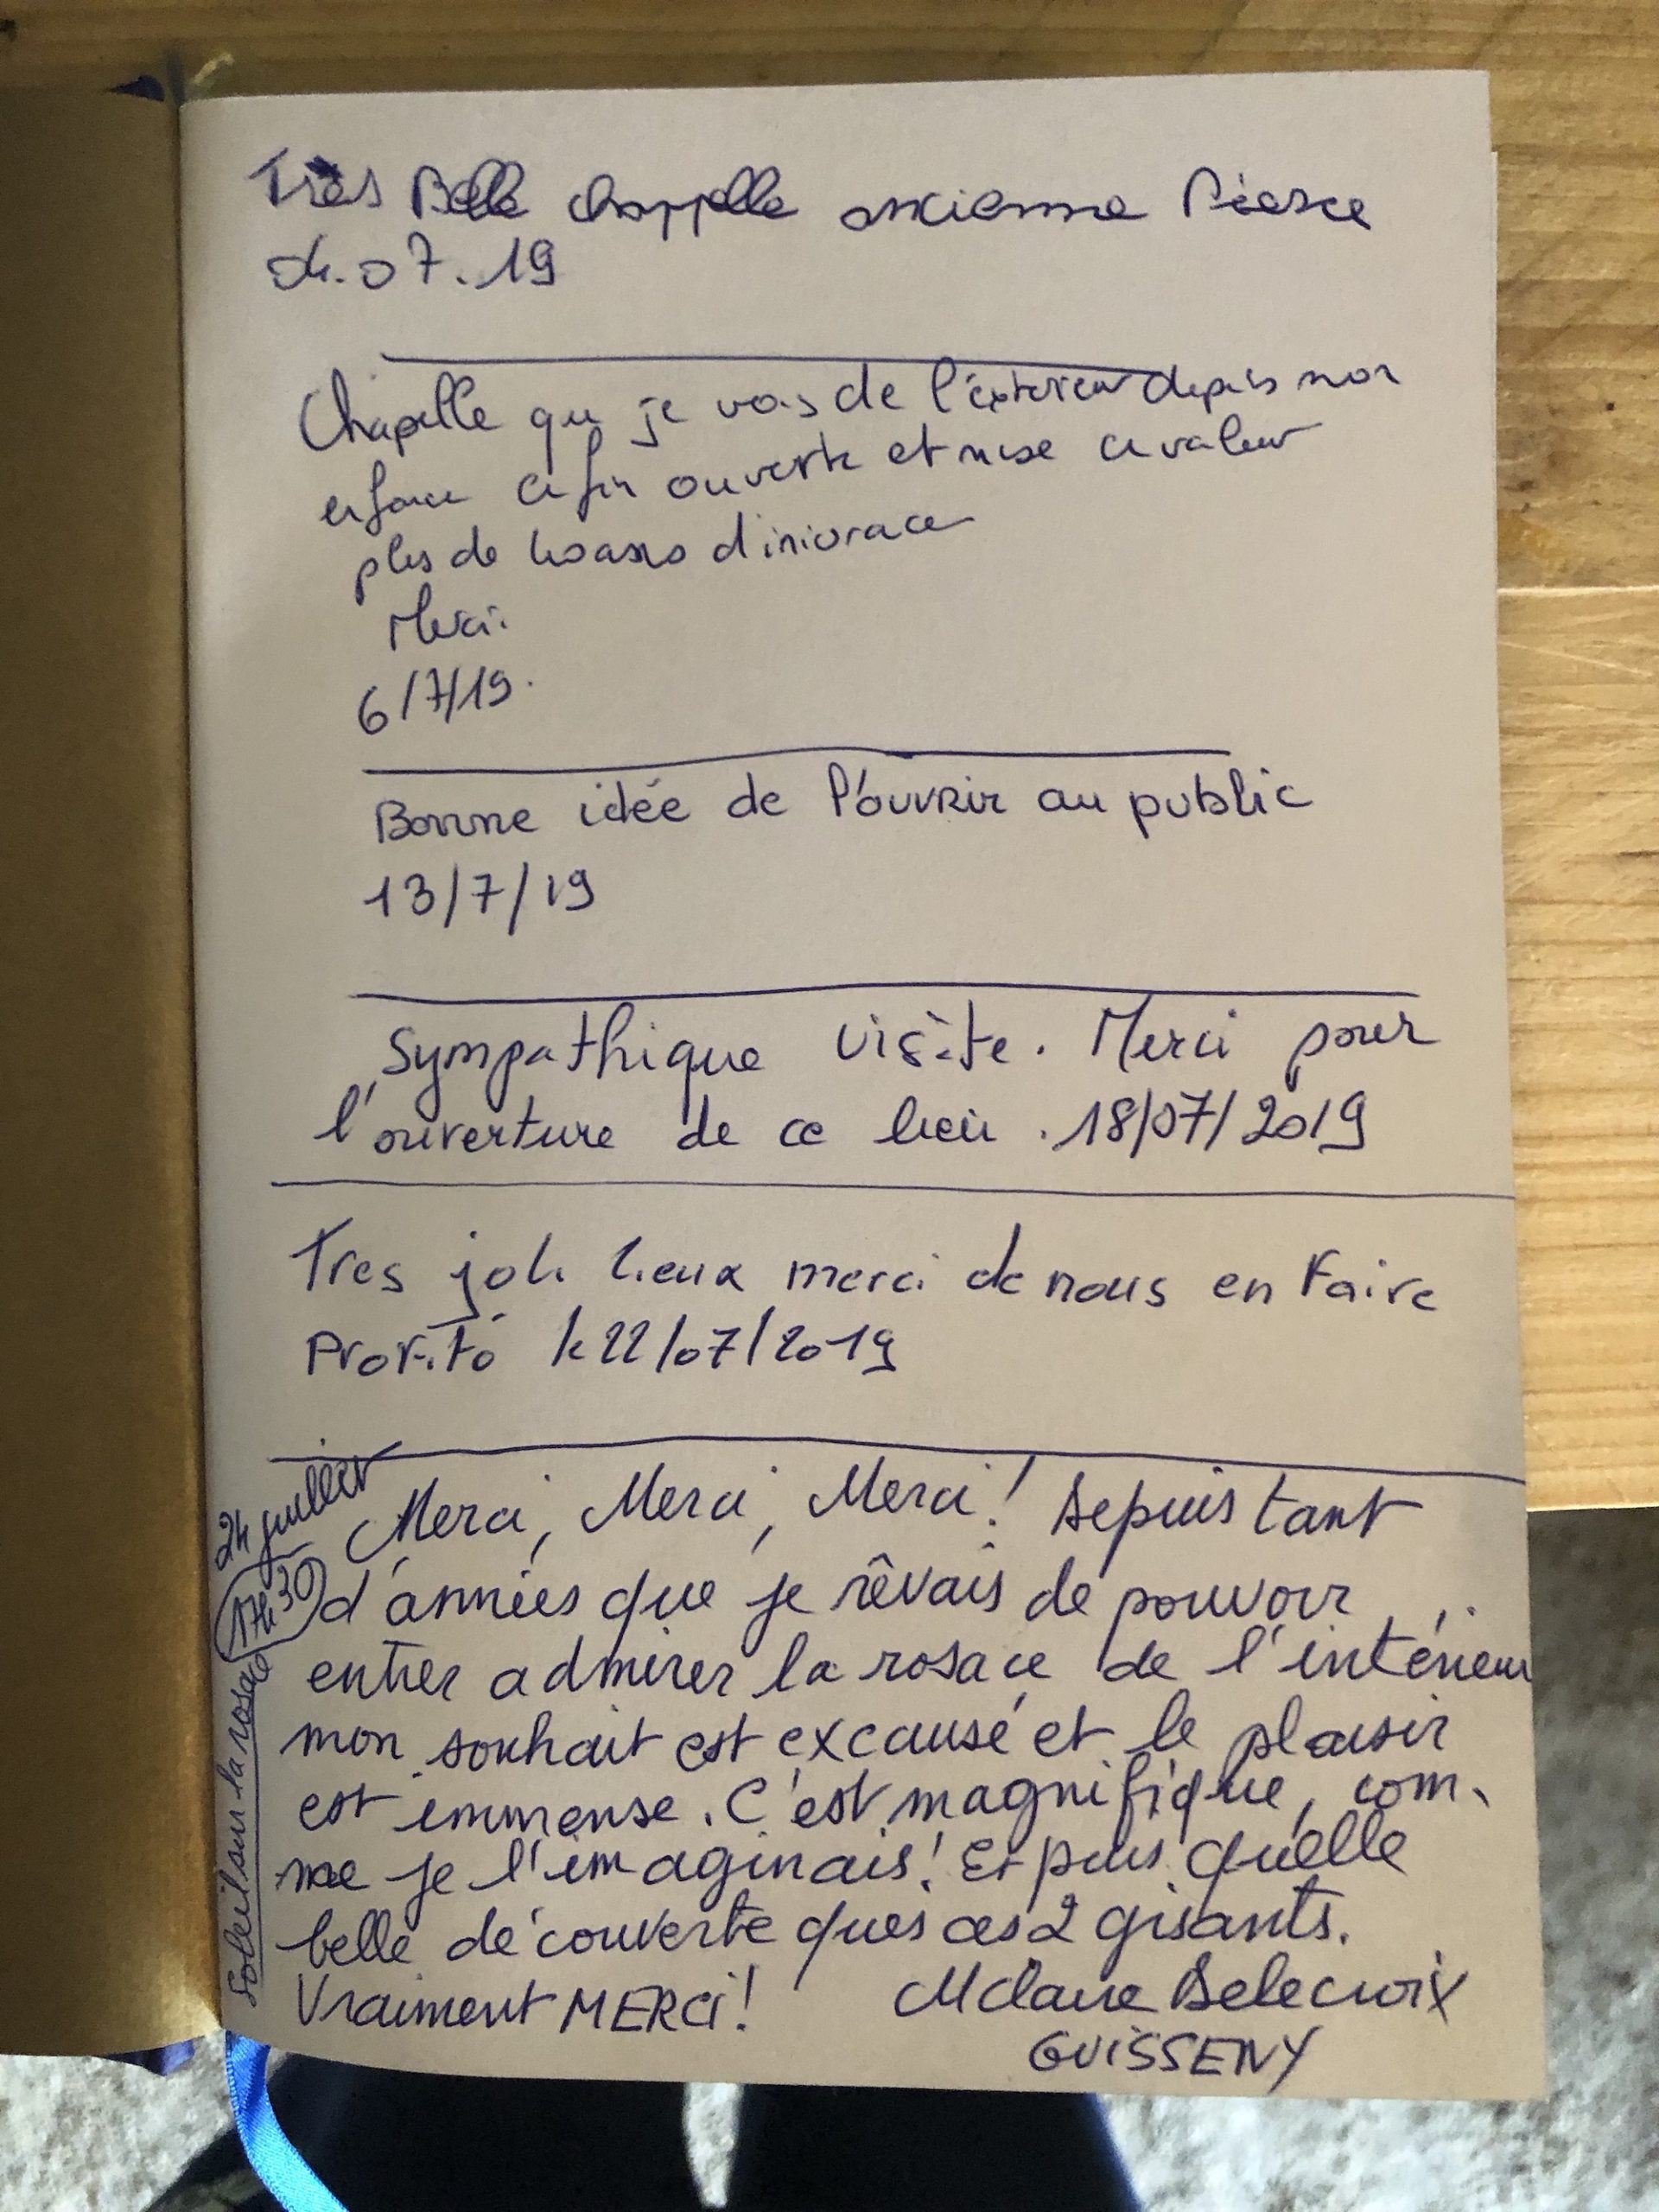 Très Belle chappelle ancienne Pierre
04.07.19
Chapelle que je vois de l'éxterieur depuis mon
enfance enfin ouverte et mise en valeur
plus de d'
Merci.
6/7/19.
Bonne idée de l'ouvrir au public
13/7/19
Sympathique visite. Merci pour
l'ouverture de ce lieu. 18/07/2019
Tres joli lieux merci de nous en Faire
Profité le 22/07/2019
24 juillet
17h30
Soleil sur la rosace
Merci, Merci, Merci! Depuis tant
d'années que je rêvais de pouvoir
entrer admirer la rosace de l'intérieur
mon souhait est excausé et le plaisir
est immense. C'est magnifique, com-
me je l'imaginais! Et puis quelle
belle découverte ques ces 2 gisants.
Vraiment MERCi! Delecroix
GUISSENY